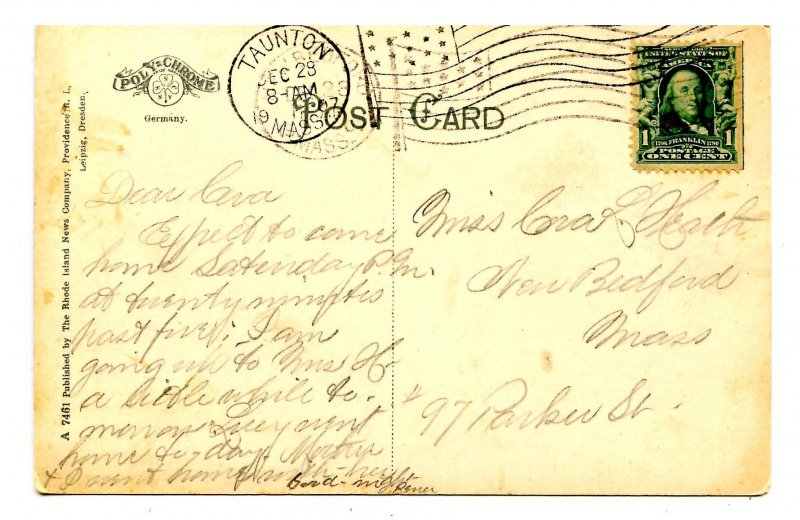 POLY-CHROME
Germany.
A 7461 Published by The Rhode Island News Company, Providence R. I.,
Leipzig, Dresden.
TAUNTON
DEC 28
8-AM
1907
MASS.
POST CARD
UNITED STATES OF
AMERICA
1 1
1706 FRANKLIN 1790
POSTAGE
ONE CENT
Dear Cora
Expect to come
home Saturday P.M.
at twenty minutes
past five. I am
going up to Mrs H-
a little while to-
morrow. Lucy went
home to-day. Mother
& I went home with her
Good-night
Miss Cora L. Heath
New Bedford
Mass
# 97 Parker St.